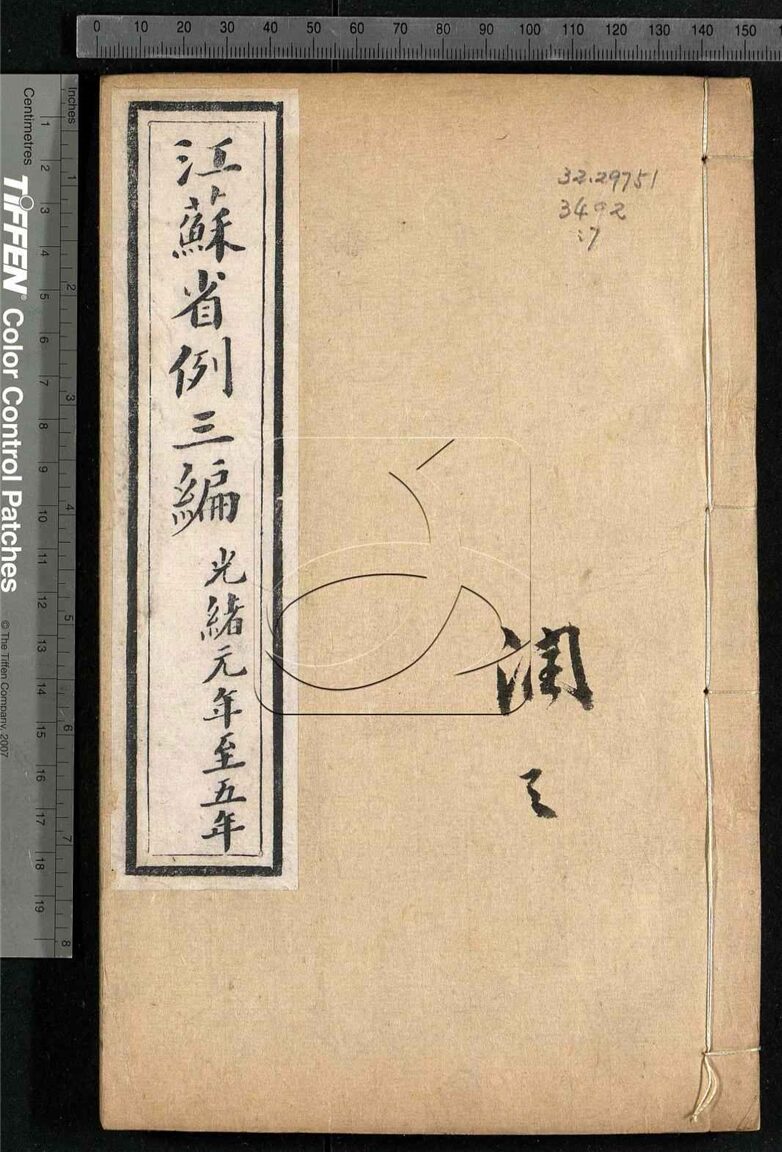 0 10 20 30 40 50 60 70 80 90 100 110 120 130 140 150
Inches
1 2 3 4 5 6 7 8
Centimetres
1 2 3 4 5 6 7 8 9 10 11 12 13 14 15 16 17 18 19
TIFFEN® Color Control Patches
© The Tiffen Company, 2007
32.29751
3492
:7
江蘇省例三編
光緒元年至五年
潤
之